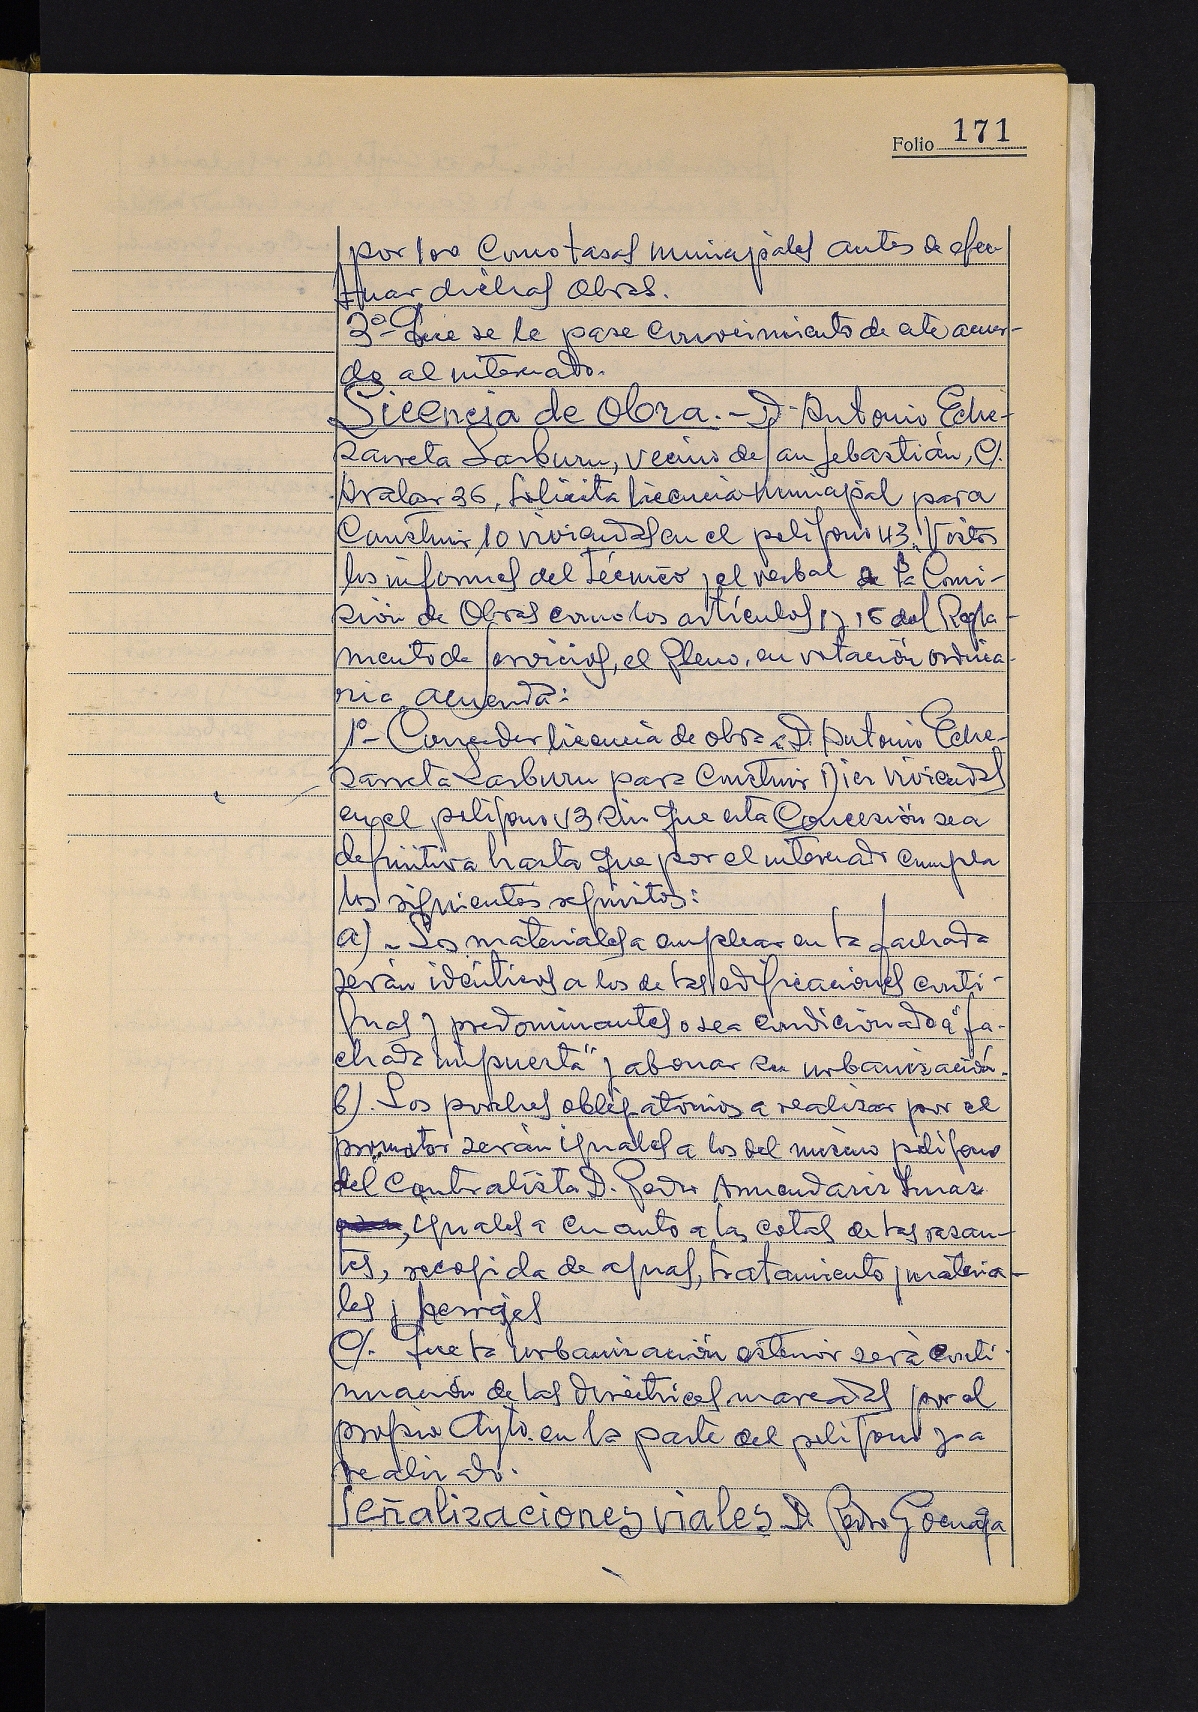 Folio 171
por 100 como tasas municipales antes de efec
tuar dichas obras.
3º- Que se le pase conocimiento de este acuer-
do al interesado.
Licencia de Obra.- D. Antonio Eche-
zarreta Lasburu, vecino de San Sebastián, C/.
36, solicita licencia municipal para
construir 10 viviendas en el polígono 43. Vistos
los informes del técnico y el verbal de la Comi-
sión de Obras como los artículos 1 y 16 del Regla-
mento de Servicios, el Pleno, en votación ordina-
ria acuerda:
1º- Conceder licencia de obra a D. Antonio Eche-
zarreta Lasburu para construir Diez viviendas
en el polígono 43 sin que esta Concesión sea
definitiva hasta que por el interesado cumpla
los siguientes requisitos:
a).- Los materiales a emplear en la fachada
serán idénticos a los de las edificaciones conti-
guas y predominantes o sea condicionado a "fa-
chada impuesta" y abonar su urbanización.
b). Los porches obligatorios a realizar por el
promotor serán iguales a los del mismo polígono
del contratista D. Pedro Armendariz
iguales en cuanto a las cotas de las rasan-
tes, recogida de aguas, tratamiento y materia-
les y herrajes
C/. Que la urbanización exterior será conti-
nuación de las directrices marcadas por el
propio Ayto. en la parte del polígono ya
realizado.
Señalizaciones viales D. Pedro Goenaga